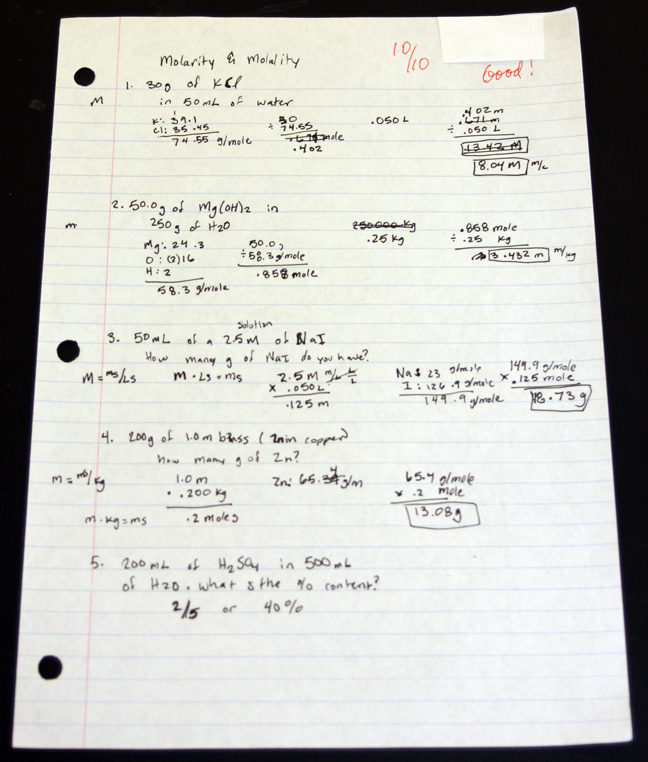 10/10
Good!
Molarity & Molality
1. 30g of KCl
M in 50mL of water
K: 39.1
Cl: 35.45
74.55 g/mole
30
÷ 74.55
mole
.402
.050L
.402 m
.671 m
÷ .050 L
13.42 M
8.04 M m/L
2. 50.0g of Mg(OH)2 in
m 250g of H2O
Mg: 24.3
O: (2)16
H: 2
58.3 g/mole
50.0g
÷58.3g/mole
.858 mole
250000 kg
.25 kg
.858 mole
÷ .25 kg
3.432 m m/kg
solution
3. 50mL of a 2.5M of NaI
How many g of NaI do you have?
M = ms/Ls
M · Ls = ms
2.5M m/L
x .050L
.125 m
Na: 23 g/mole
I: 126.9 g/mole
149.9 g/mole
149.9 g/mole
x .125 mole
18.73g
4. 200g of 1.0m brass (Zn in copper)
How many g of Zn?
m = ms/kg
m · kg = ms
1.0m
· .200 kg
.2 moles
Zn: 65.4 g/m
65.4 g/mole
x .2 mole
13.08g
5. 200mL of H2SO4 in 500mL
of H2O. What is the % content?
2/5 or 40%